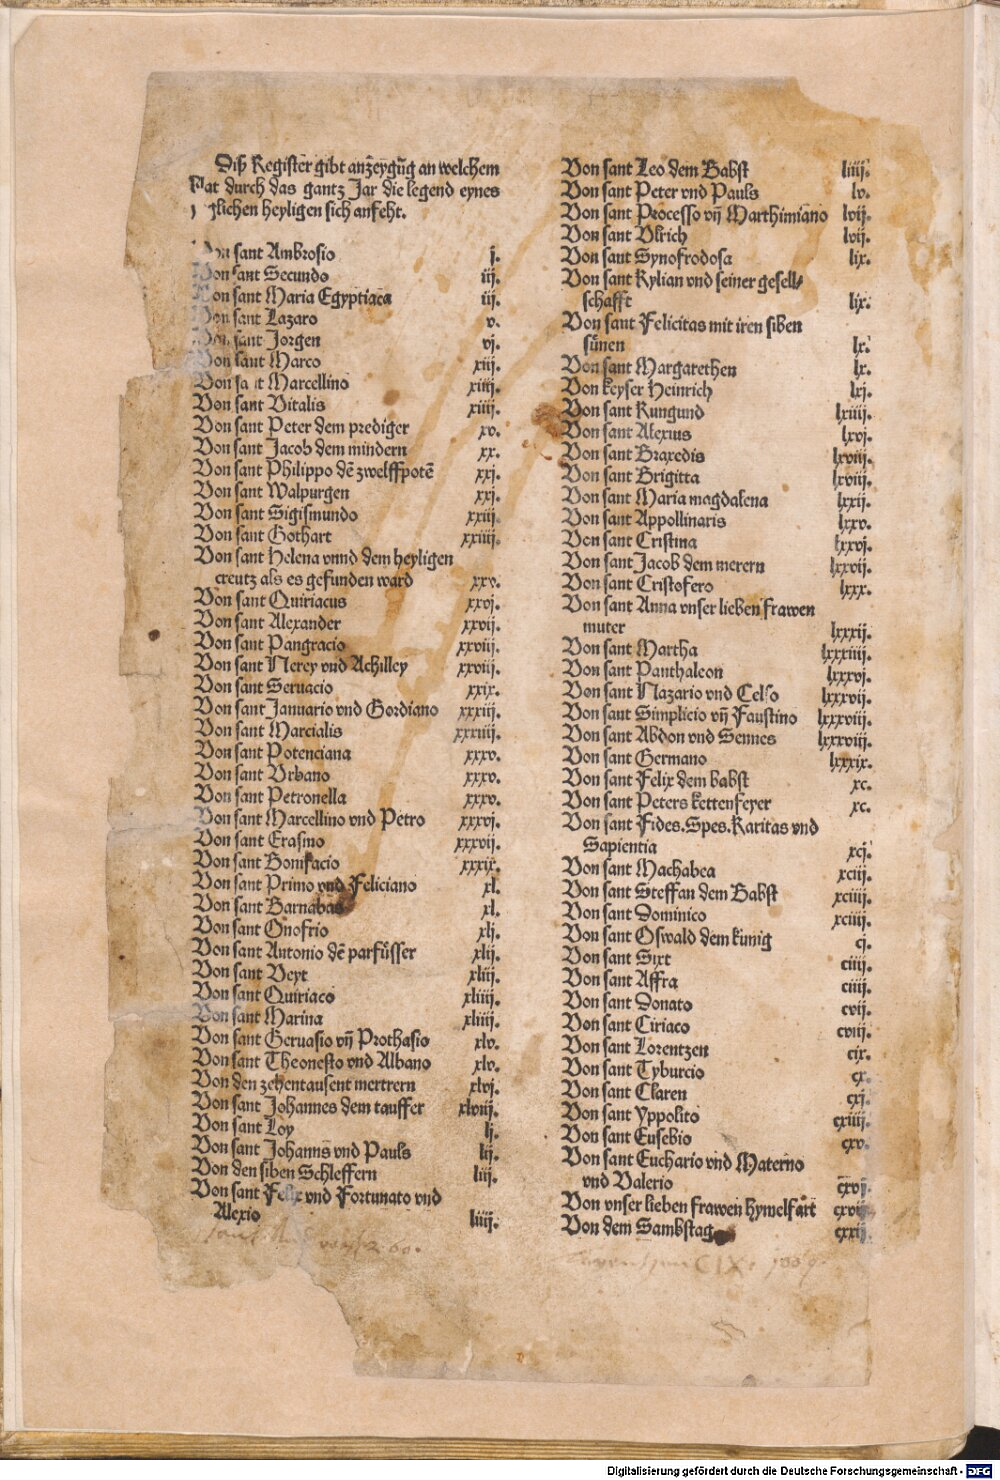 Diß Register gibt anzeygũg an welchem
blat durch das gantz Jar die legend eynes
yglichen heyligen sich anfeht.
Von sant Ambrosio j.
Von sant Secundo iij.
Von sant Maria Egyptiaca iij.
Von sant Lazaro v.
Von sant Jorgen vj.
Von sant Marco xiij.
Von sant Marcellino xiiij.
Von sant Vitalis xiiij.
Von sant Peter dem prediger xv.
Von sant Jacob dem mindern xx.
Von sant Philippo dẽ zwelffpotẽ xxj.
Von sant Walpurgen xxj.
Von sant Sigismundo xxiij.
Von sant Gothart xxiiij.
Von sant Helena vnnd dem heyligen
creutz als es gefunden ward xxv.
Von sant Quiriacus xxvj.
Von sant Alexander xxvij.
Von sant Pangracio xxviij.
Von sant Nerey vnd Achilley xxviij.
Von sant Seruacio xxix.
Von sant Januario vnd Gordiano xxxiij.
Von sant Marcialis xxxiiij.
Von sant Potenciana xxxv.
Von sant Vrbano xxxv.
Von sant Petronella xxxv.
Von sant Marcellino vnd Petro xxxvj.
Von sant Erasmo xxxvij.
Von sant Bonifacio xxxix.
Von sant Primo vnd Feliciano xl.
Von sant Barnabas xl.
Von sant Onofrio xlj.
Von sant Antonio dẽ parfüsser xlij.
Von sant Veyt xliij.
Von sant Quiriaco xliiij.
Von sant Marina xliiij.
Von sant Geruasio vñ Prothasio xlv.
Von sant Theonesto vnd Albano xlv.
Von den zehentausent mertrern xlvj.
Von sant Johannes dem tauffer xlviij.
Von sant Loy lj.
Von sant Johanns vnd Pauls lij.
Von den siben Schleffern liij.
Von sant Felix vnd Fortunato vnd
Alexio liiij.
Von sant Leo dem Babst liiij.
Von sant Peter vnd Pauls lv.
Von sant Processo vñ Marthimiano lvij.
Von sant Vlrich lvij.
Von sant Synofrodosa lix.
Von sant Kylian vnd seiner gesell⸗
schafft lix.
Von sant Felicitas mit iren siben
sünen lx.
Von sant Margarethen lx.
Von keyser Heinrich lxj.
Von sant Kungund lxiiij.
Von sant Alexius lxvj.
Von sant Braxedis lxviij.
Von sant Brigitta lxviij.
Von sant Maria magdalena lxxij.
Von sant Appollinaris lxxv.
Von sant Cristina lxxvj.
Von sant Jacob dem merern lxxvij.
Von sant Cristofero lxxx.
Von sant Anna vnser lieben frawen
muter lxxxij.
Von sant Martha lxxxiiij.
Von sant Panthaleon lxxxvj.
Von sant Nazario vnd Celso lxxxvij.
Von sant Simplicio vñ Faustino lxxxviij.
Von sant Abdon vnd Sennes lxxxviij.
Von sant Germano lxxxix.
Von sant Felix dem babst xc.
Von sant Peters kettenfeyer xc.
Von sant Fides.Spes.Karitas vnd
Sapientia xcj.
Von sant Machabea xciij.
Von sant Steffan dem Babst xciiij.
Von sant Dominico xciiij.
Von sant Oswald dem künig cj.
Von sant Sixt ciiij.
Von sant Affra ciiij.
Von sant Donato cvij.
Von sant Ciriaco cviij.
Von sant Lorentzen cix.
Von sant Tyburcio cx.
Von sant Claren cxj.
Von sant Yppolito cxiiij.
Von sant Eusebio cxv.
Von sant Euchario vnd Materno
vnd Valerio cxvj.
Von vnser lieben frawen hymelfart cxvij.
Von dem Sambstag cxxij.
Digitalisierung gefördert durch die Deutsche Forschungsgemeinschaft - DFG